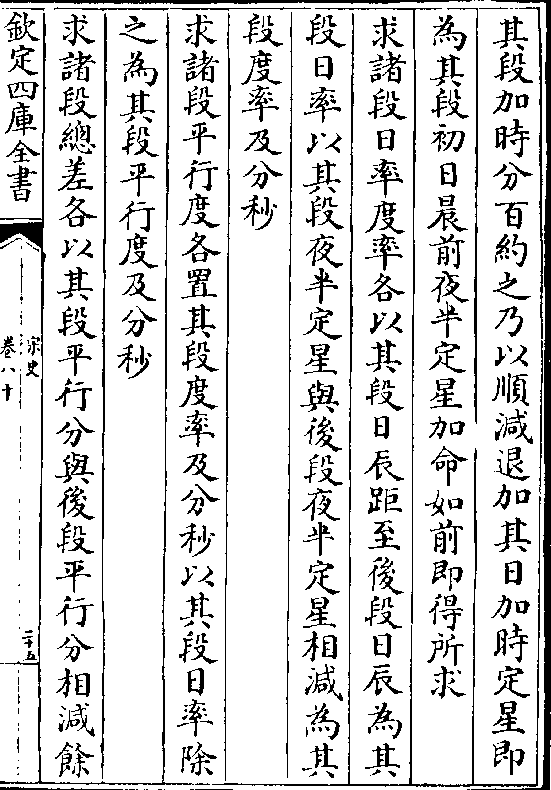 其段加時分百約之乃以順減退加其日加時定星即
為其段初日晨前夜半定星加命如前即得所求
求諸段日率度率各以其段日辰距至後段日辰為其
段日率以其段夜半定星與後段夜半定星相減為其
段度率及分秒
求諸段平行度各置其段度率及分秒以其段日率除
之為其段平行度及分秒
求諸段總差各以其段平行分與後段平行分相減餘
欽定四庫全書
宋史
卷八十
二十五